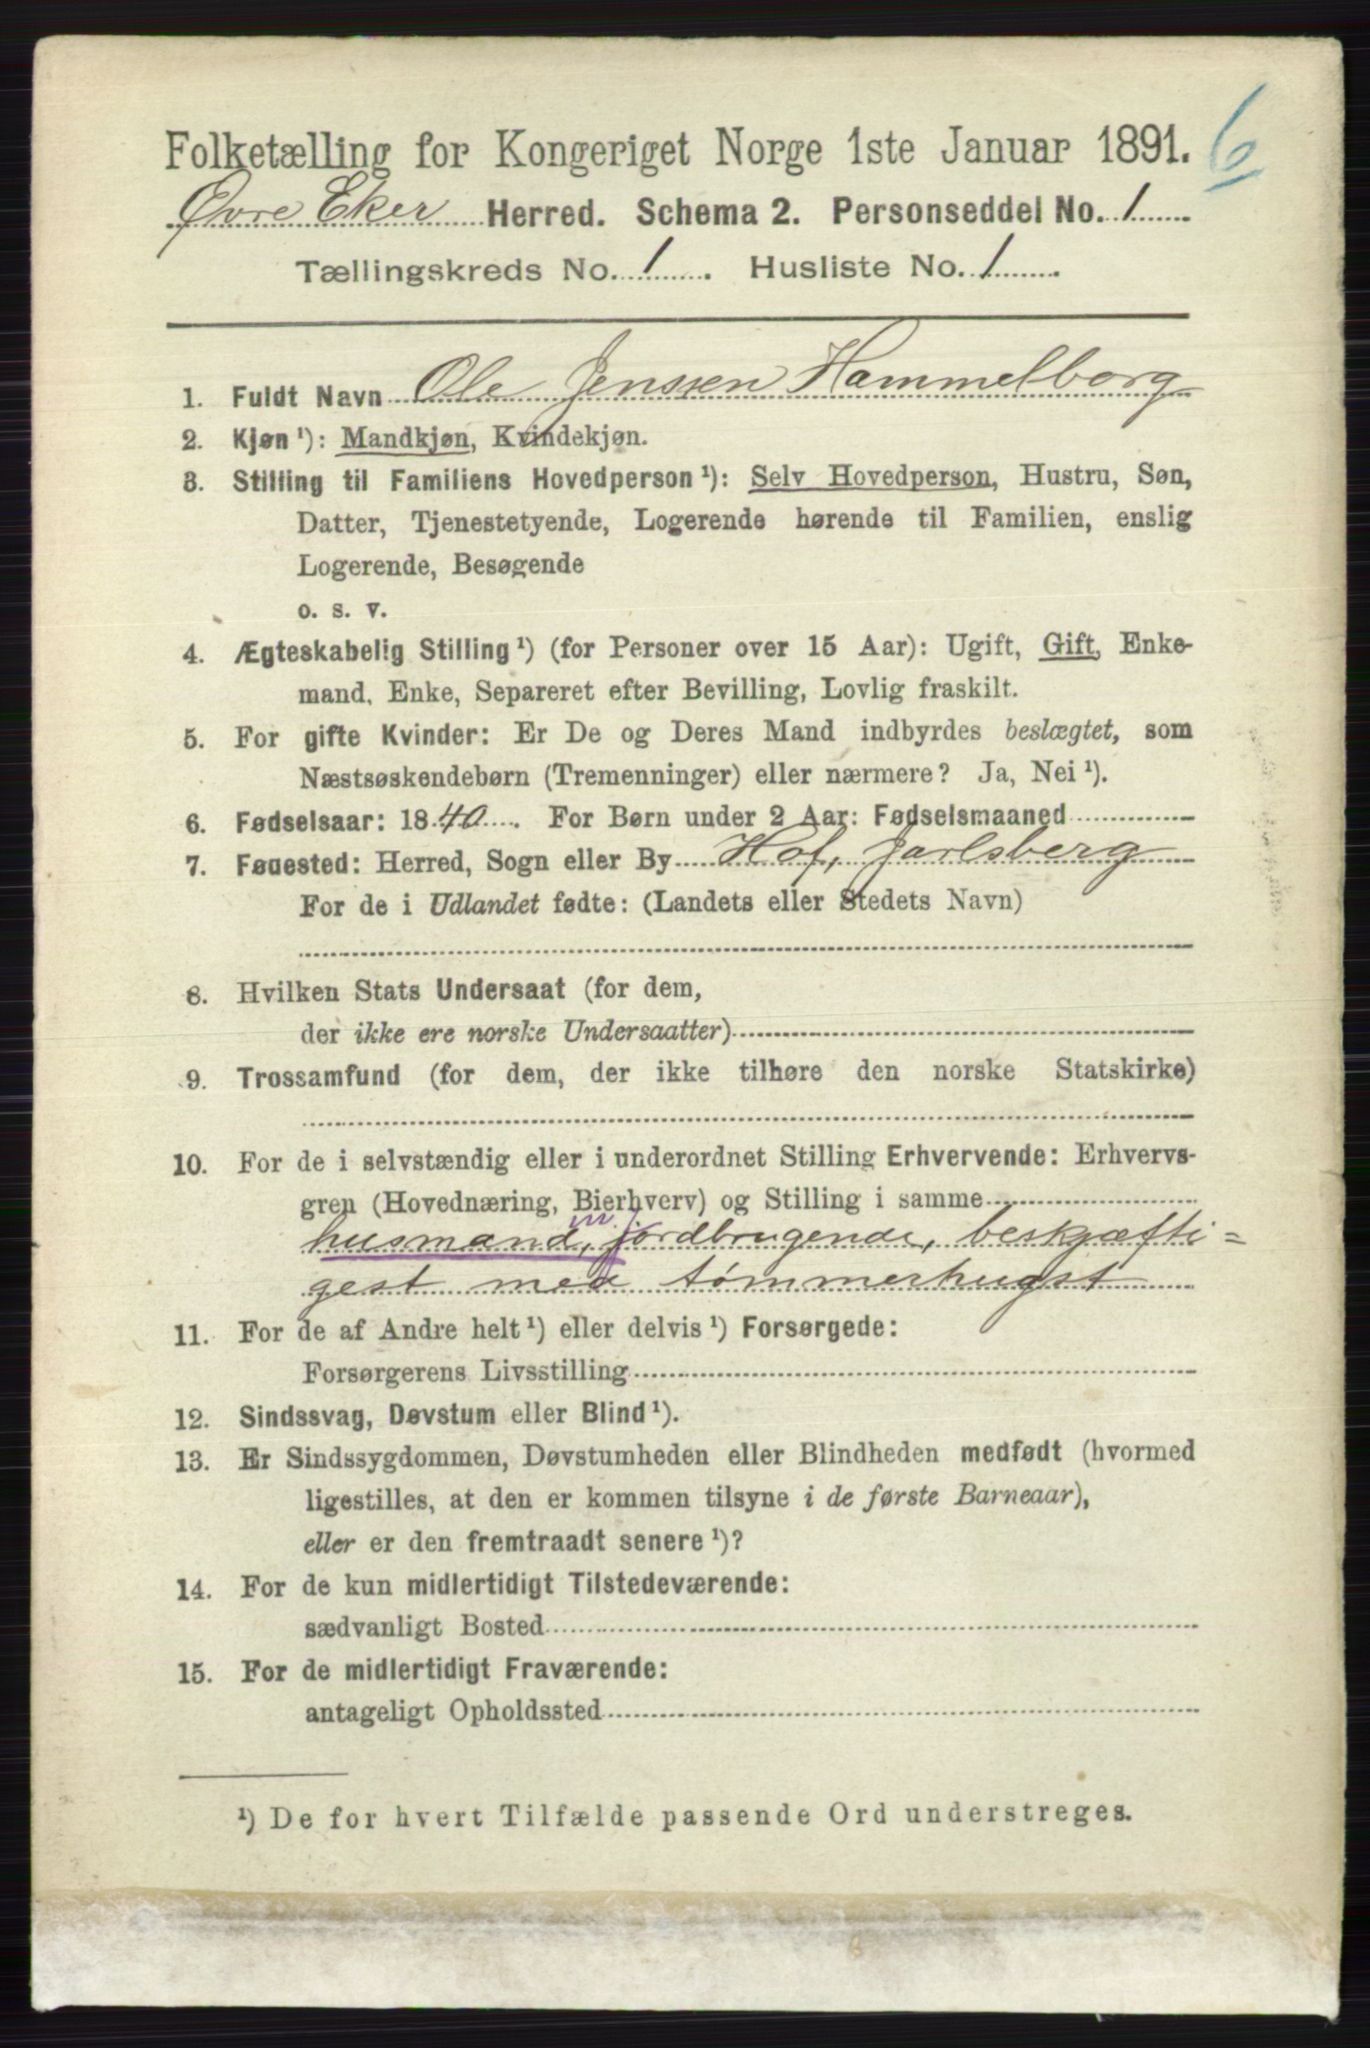 6
Folketælling for Kongeriget Norge 1ste Januar 1891.
Øvre Eker Herred. Schema 2. Personseddel No. 1
Tællingskreds No. 1. Husliste No. 1.
1. Fuldt Navn Ole Jenssen Hammelborg
2. Kjøn ¹): Mandkjøn, Kvindekjøn.
3. Stilling til Familiens Hovedperson ¹): Selv Hovedperson, Hustru, Søn,
Datter, Tjenestetyende, Logerende hørende til Familien, enslig
Logerende, Besøgende
o. s. v.
4. Ægteskabelig Stilling ¹) (for Personer over 15 Aar): Ugift, Gift, Enke-
mand, Enke, Separeret efter Bevilling, Lovlig fraskilt.
5. For gifte Kvinder: Er De og Deres Mand indbyrdes beslægtet, som
Næstsøskendebørn (Tremenninger) eller nærmere? Ja, Nei ¹).
6. Fødselsaar: 1840. For Børn under 2 Aar: Fødselsmaaned
7. Fødested: Herred, Sogn eller By Hof, Jarlsberg
For de i Udlandet fødte: (Landets eller Stedets Navn)
8. Hvilken Stats Undersaat (for dem,
der ikke ere norske Undersaatter)
9. Trossamfund (for dem, der ikke tilhøre den norske Statskirke)
10. For de i selvstændig eller i underordnet Stilling Erhvervende: Erhvervs-
gren (Hovednæring, Bierhverv) og Stilling i samme
husmand, m/ jordbrugende, beskjæfti=
gest med tømmerhugst
11. For de af Andre helt ¹) eller delvis ¹) Forsørgede:
Forsørgerens Livsstilling
12. Sindssvag, Døvstum eller Blind ¹).
13. Er Sindssygdommen, Døvstumheden eller Blindheden medfødt (hvormed
ligestilles, at den er kommen tilsyne i de første Barneaar),
eller er den fremtraadt senere ¹)?
14. For de kun midlertidigt Tilstedeværende:
sædvanligt Bosted
15. For de midlertidigt Fraværende:
antageligt Opholdssted
¹) De for hvert Tilfælde passende Ord understreges.